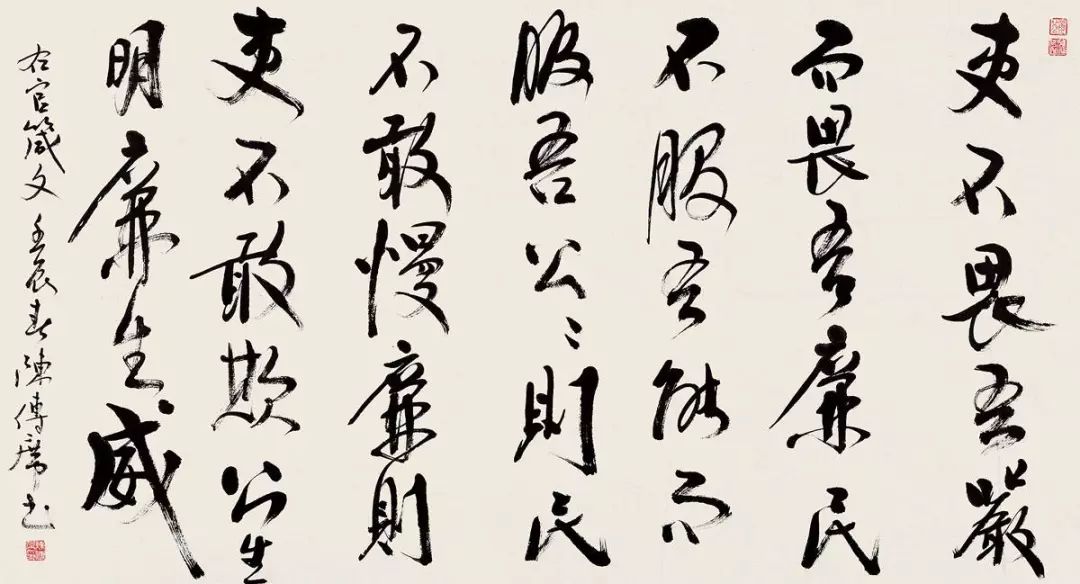 吏不畏吾嚴
而畏吾廉民
不服吾能而
服吾公〻則民
不敢慢廉則
吏不敢欺公生
明廉生威
右官箴文壬辰春陳傳席書